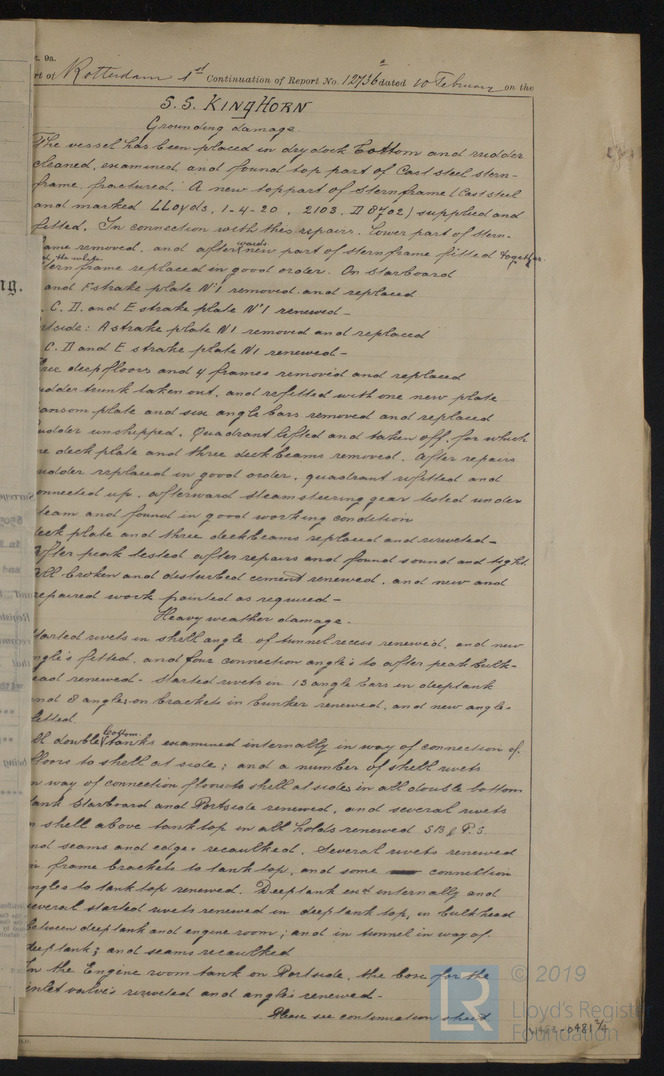 t. 9a.
rt of Rotterdam 1st Continuation of Report No. 12736 dated 10 February on the
S.S. KINGHORN
Grounding damage.
The vessel has been placed in drydock bottom and rudder
cleaned, examined, and found top part of Cast steel stern-
frame fractured. A new toppart of sternframe (Cast steel
and marked LLoyds, 1-4-20, 2103. D 8702) supplied and
fitted. In connection with this repairs. Lower part of stern-
ame removed, and afterwards new part of sternframe fitted together
the whole
sternframe replaced in good order. On starboard
and F strake plate No1 removed and replaced
C. D. and E strake plate No1 renewed -
rtside: A strake plate N1 removed and replaced
C. D and E strake plate N1 renewed -
ree deepfloors and 4 frames removed and replaced
udder trunk taken out, and refitted with one new plate
ansom plate and six angle bars removed and replaced
udder unshipped. Quadrant lifted and taken off, for which
ne deck plate and three deck beams removed. After repairs
udder replaced in good order, quadrant refitted and
onnected up. afterward steam steering gear tested under
team and found in good working condition
deck plate and three deckbeams replaced and riveted -
After peak tested after repairs and found sound and tight.
All broken and desturbed cement renewed, and new and
repaired work painted as required -
Heavy weather damage.
started rivets in shell angle of tunnel recess renewed, and new
ngle's fitted, and four connection angle's to after peak bulk-
ead renewed. Started rivets in 13 angle bars in deeptank
nd 8 angles on brackets in bunker renewed, and new angle-
fitted
ll double bottom tanks examined internally in way of connection of
floors to shell at side; and a number of shell rivets
n way of connection floors to shell at sides in all double bottom
tank Starboard and Portside renewed, and several rivets
n shell above tanktop in all holds renewed S.B. & P.S.
nd seams and edges recaulked. Several rivets renewed
in frame brackets to tanktop, and some connection
ngles to tank top renewed. Deeptank ext internally and
several started rivets renewed in deeptank top, in bulkhead
between deeptank and engine room; and in tunnel in way of
deeptank; and seams recaulked
In the Engine room tank on Portside, the box for the
inlet valve's riveted and angles renewed -
Please see continuation sheet
ng.
© 2019
LR
Lloyd's Register
Foundation